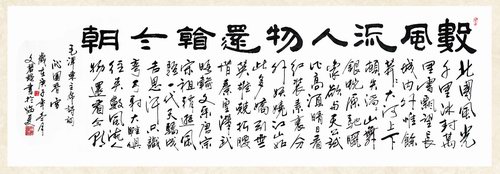 數風流人物還看今朝
北國風光
千里冰封萬
里雪飄望長
城内外惟餘
莽莽大河上下
頓失滔滔山舞
銀蛇原馳蠟
象欲與天公試
比高須晴日看
紅裝素裹分
外妖嬈江山如
此多嬌引無數
英雄競折腰
惜秦皇漢武
略輸文采唐宗
宋祖稍遜風
騷一代天驕成
吉思汗只識
彎弓射大雕俱
往矣數風流人
物還看今朝
毛澤東主席詩詞
沁園春雪